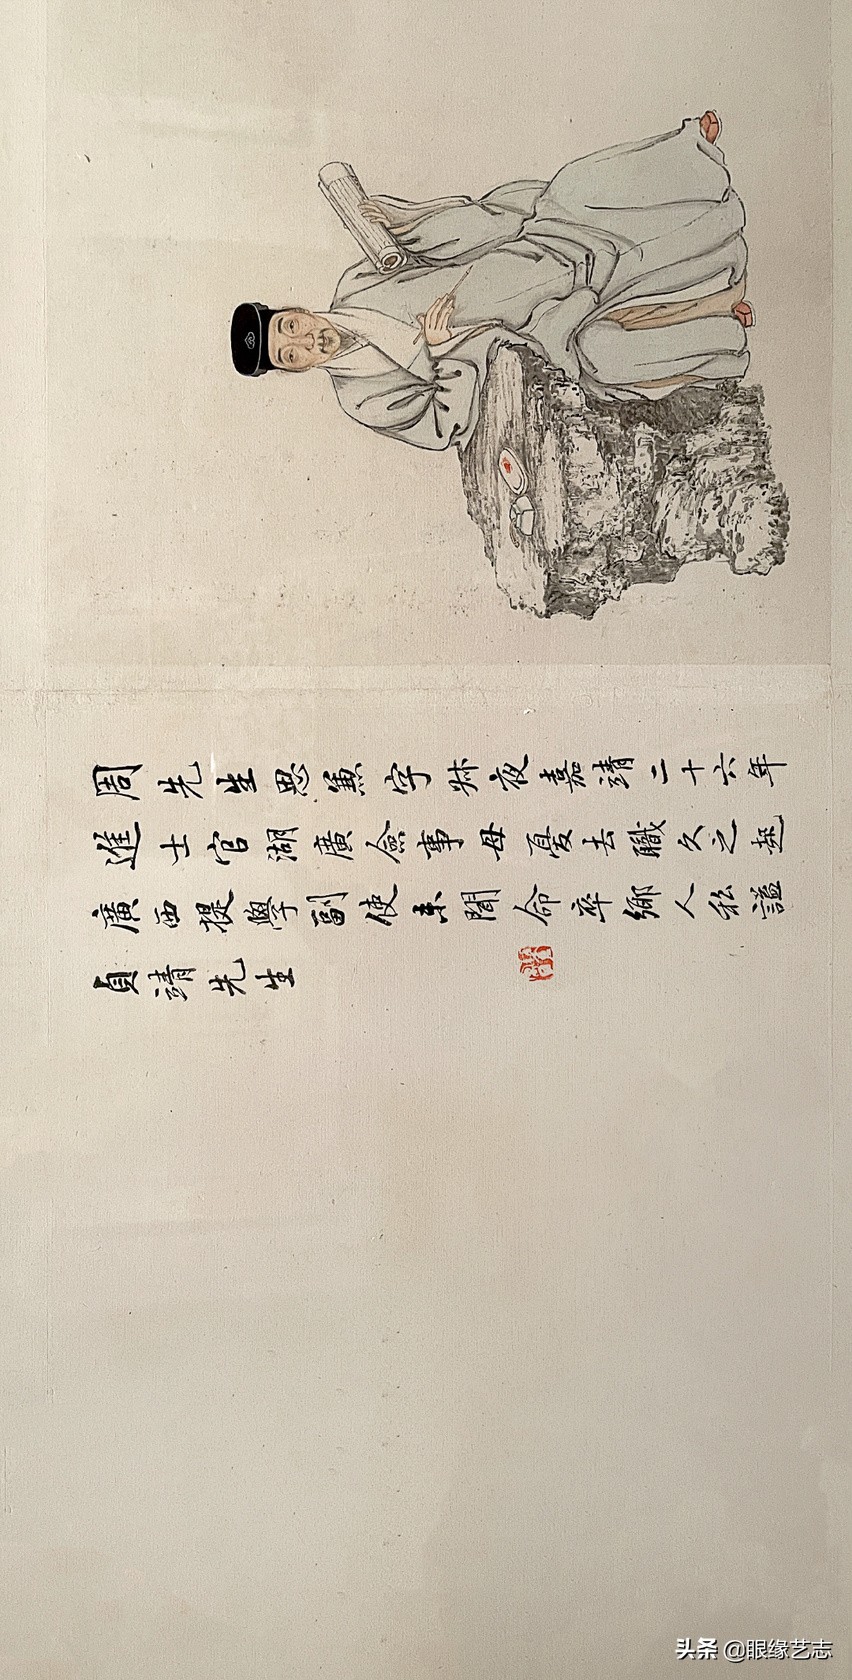 周先生思兼字叔夜嘉靖二十六年
進士官湖廣僉事母憂去職久之起
廣西提學副使未聞命卒鄉人私謚
貞靖先生
头条 @眼缘艺志